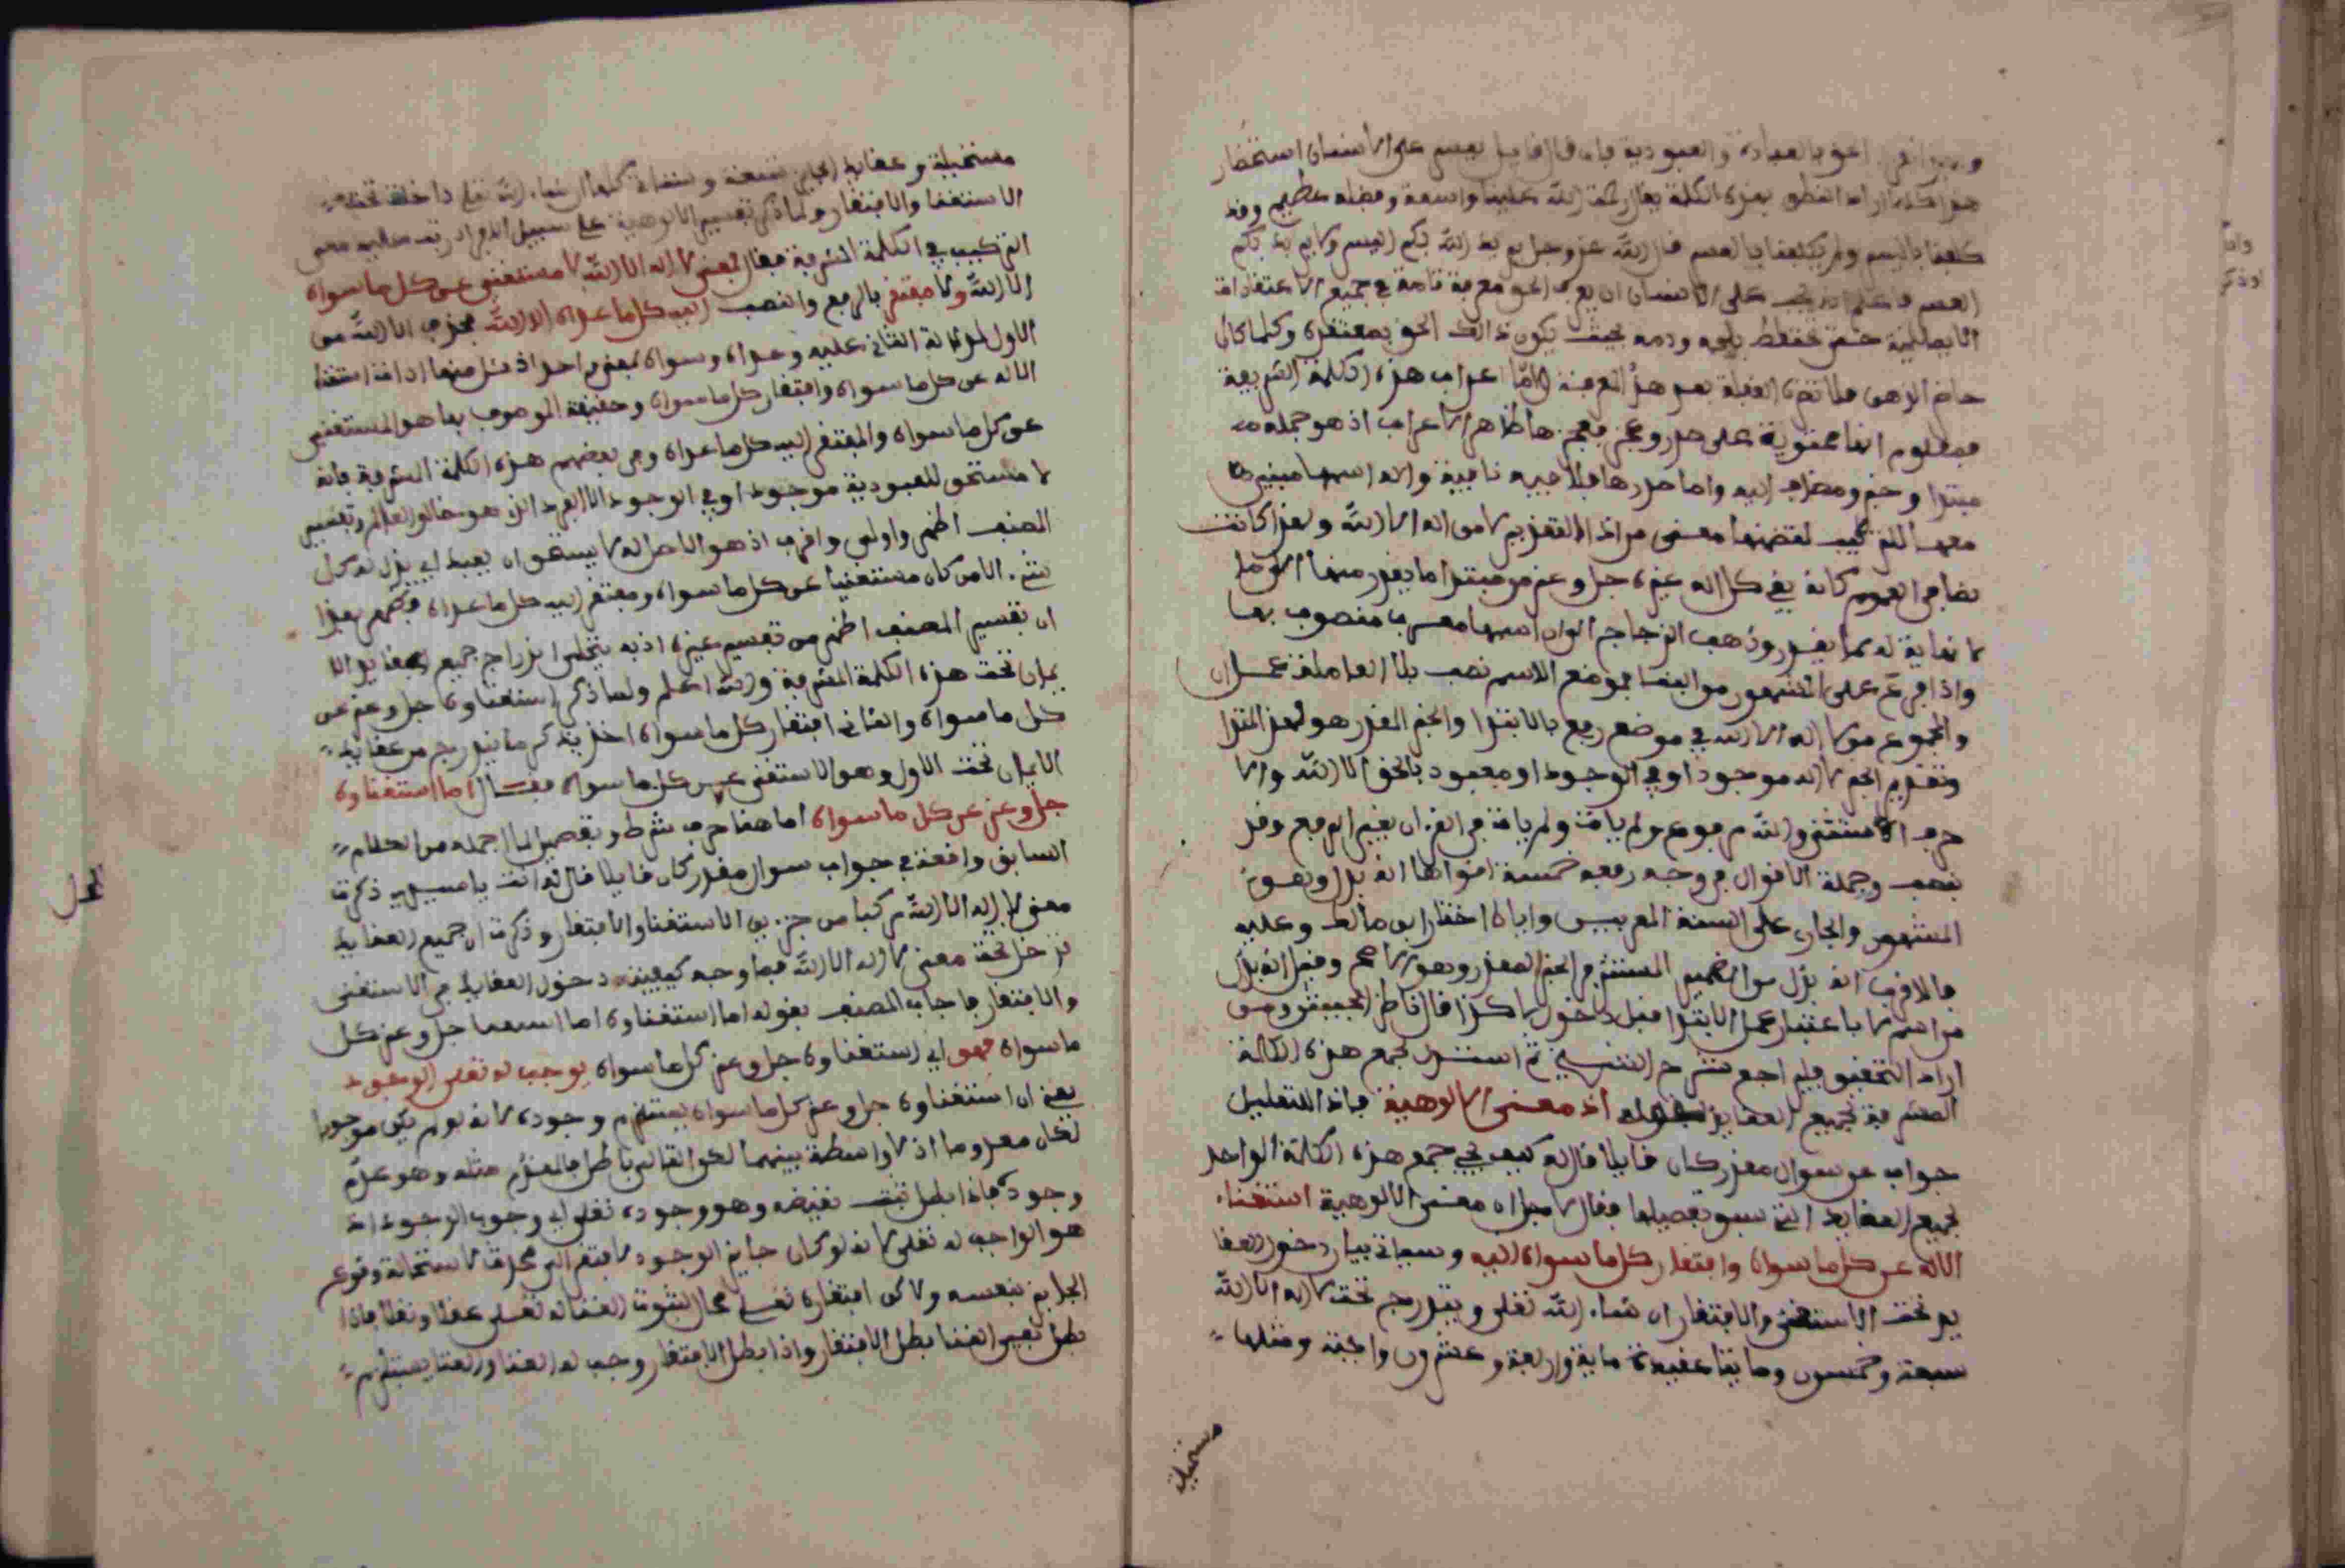 اعنى بالعبادة والعبودية فان قال قائل يعسر على الانسان استحضار
هذا كله اذا اراد النطق بهذه الكلمة يقال رحمة الله علينا واسعة وفضله عظيم وقد
كلفنا باليسر ولم يكلفنا بالعسر قال الله عز وجل يريد الله بكم اليسر ولا يريد بكم
العسر فاعلم انه يجب على الانسان ان يعرف الحق معرفة تامة في جميع الاعتقادات
الايمانية حتى تختلط بلحمه ودمه بحيث يكون ذالك الحق بمعتقده وكلما كان
حاضر الذهن فلا تضره الغفلة بعد هذه المعرفة واما اعراب هذه الكلمة الشريفة
فمعلوم انها محتوية على صدر وعجز فعجزها ظاهر الاعراب اذ هو جملة من
مبتدا وخبر ومضاف اليه واما صدرها فلا فيه نافية واله اسمها مبني معها
معها للتركيب لتضمنها معنى من اذ التقدير لا من اله الا الله ولهذا كانت
نصا في العموم كانه نفي كل اله غيره جل وعز من مبتدا ما يقدر منها الى ما
لا نهاية له مما يقدر وذهب الزجاج الى ان اسمها معرب منصوب بها
واذا فرع على المشهور من البنا فموضع الاسم نصب بلا العاملة عمل ان
والمجموع من لا اله الا الله في موضع رفع بالابتدا والخبر المقدر هو لهذا المبتدا
وتقدير الخبر لا اله موجود او في الوجود او معبود بالحق الا الله والا
حرف الاستثنى والله مرفوع ولم يات ولم يات في القرءان بغير الرفع وقد
ينصب وجملة الاقوال في وجه رفعه خمسة اقواها انه بدل وهو
المشهور والجاري على السنة المعربين واياه اختار ابن مالك وعليه
فالاقرب انه بدل من الضمير المستتر في الخبر المقدر وهو الاصح وقيل انه بدل
من اسم لا باعتبار عمل الابتدا قبل دخول لا كذا قال ناظر الجيش ومن
اراد التحقيق فليراجع شرح التسهيل ثم استدل لجمع هذه الكلمة
المشرفة لجميع العقايد بقوله اذ معنى الالوهية فاذ للتعليل
جواب عن سوال مقدر كان قايلا قال له كيف في جمع هذه الكلمة الواحد
لجميع العقايد التي سبق تفصيلها فقال لا ميز ان معنى الالوهية استغناء
الاله عن كل ما سواه وافتقار كل ما سواه اليه وسياتي بيان دخول العقا
يد تحت الاستغنى والافتقار ان شاء الله تعلى ويندرج تحت لا اله الا الله
سبعة وخمسون ومايتا عقيدة ماية واربعة وعشرون واجبة ومثلها
مستحيلة
مستحيلة وعقايد الجايز تسعة وستاتي كلها ان شاء الله تعلى داخلة تحت
الاستغنا والافتقار ولما ذكر تفسير الالوهية على سبيل الافراد رتب عليه معنى
التركيب في الكلمة المشرفة فقال فمعنى لا اله الا الله لا مستغني عن كل ما سواه
الا الله ولا مفتقر بالرفع والنصب اليه كل ما عداه الا الله فحذف الا الله من
الاول لدلالة الثاني عليه وعداه وسواه بمعنى واحد اذ كل منهما اداة استثنا
الاله عن كل ما سواه وافتقار كل ما سواه وحقيقة الموصوف بها هو المستغني
عن كل ما سواه والمفتقر اليه كل ما عداه وفسر بعضهم هذه الكلمة المشرفة بانه
لا مستحق للعبودية موجود او في الوجود الا الفرد الذي هو خالق العالم وتفسير
المصنف اظهر واولى واقرب اذ هو الاصل له لا يستحق ان يعبد اي يذل له كل
شيء الا من كان مستغنيا عن كل ما سواه ومفتقر اليه كل ما عداه فظهر بهذا
ان تفسير المصنف اظهر من تفسير غيره اذ به يتجلى اندراج جميع عقايد الا
يمان تحت هذه الكلمة المشرفة والله اعلم ولما ذكر استغناوه جل وعز عن
كل ما سواه والثاني افتقار كل ما سواه اخذ يذكر ما يندرج من عقايد
الايمان تحت الاول وهو الاستغنى عن كل ما سواه فقال اما استغناوه
جل وعز عن كل ما سواه اما هنا حرف شرط وتفصيل لما اجمله من الكلام
السابق واقعة في جواب سوال مقدر كان قايلا قال له انت يا سيدي ذكرت
معنى لا اله الا الله مركبا من جزءين الاستغنا والافتقار وذكرت ان جميع العقايد
تدخل تحت معنى لا اله الا الله فما وجه كيفية دخول العقايد في الاستغنى
والافتقار فاجاب المصنف بقوله اما استغناوه اما استغنا جل وعز كل
ما سواه فهو اي استغناوه جل وعز كل ما سواه يوجب له تعلى الوجود
يعني ان استغناوه جل وعز عن كل ما سواه يستلزم وجوده لانه لو لم يكن موجودا
لكان معدوما اذ لا واسطة بينهما لكن التالي باطل فالمقدم مثله وهو عدم
وجوده فاذا بطل ثبت نقيضه وهو وجوده تعلى اي وجوب الوجود اذ
هو الواجب له تعلى لانه لو كان جايز الوجود لافتقر الى محدث لاستحالة وقوع
الجايز بنفسه ولاكن افتقاره تعلى محال لثبوت الغنا له تعلى عقلا ونقلا فاذا
بطل نفي الغنا بطل الافتقار واذا بطل الافتقار وجب له الغنا والغنا يستلزم